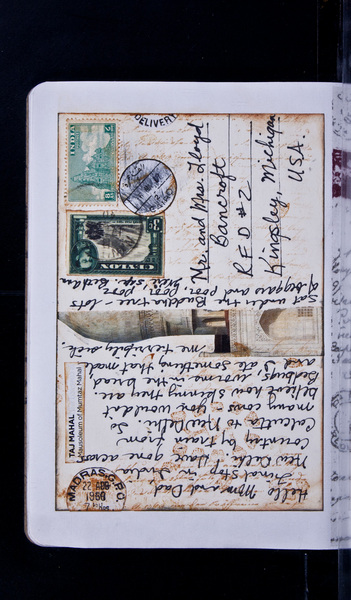 Hello Mom and Dad
Final stop in India
New Delhi. I have gone across
country by train from
Calcutta to New Delhi. So
many cows - you wouldn't
believe how skinny they are
Bedbugs, worms in the bread
and I ate something that made
me terribly sick.
Sat under the Buddha tree - lots
of beggars and poor, poor
TAJ MAHAL
Mausoleum of Mumtaz Mahal
MADRAS G.P.O.
22 AUG
1966
DELIVERY
INDIA
8
CEYLON
Mr. and Mrs. Lloyd
Bancroft
RFD #2
Kingsley, Michigan
USA.